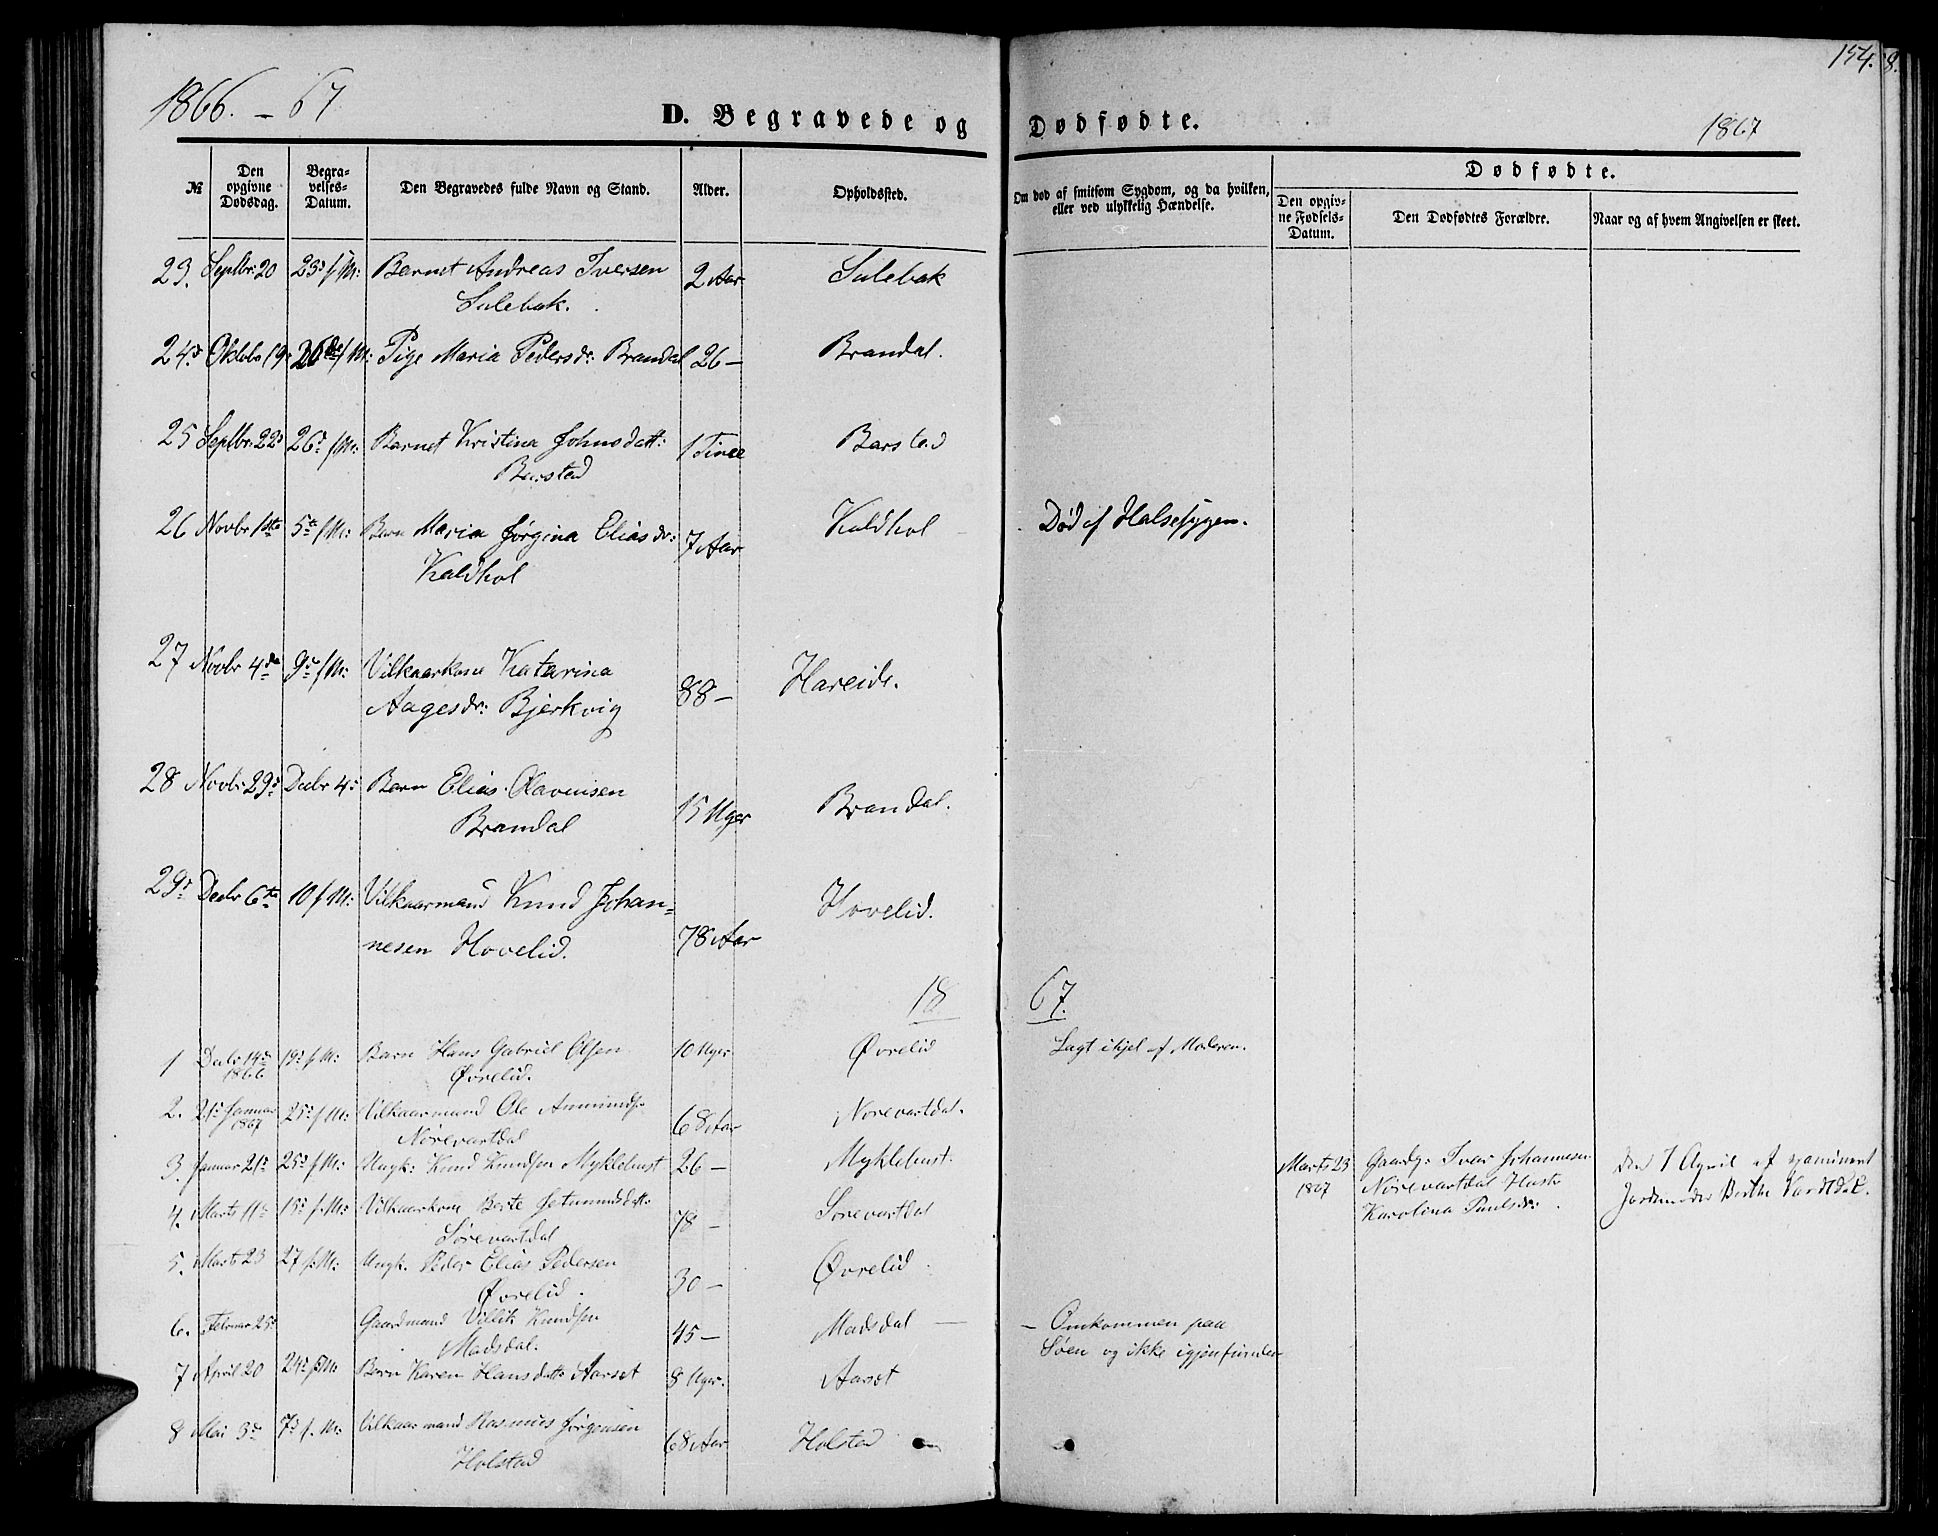 1866. – 67
D. Begravede og Dødfødte.
1867
154.
8.
№
Den opgivne Dødsdag.
Begravelses-Datum.
Den Begravedes fulde Navn og Stand.
Alder.
Opholdssted.
Om død af smitsom Sygdom, og da hvilken, eller ved ulykkelig Hændelse.
Dødfødte.
Den opgivne Fødsels-Datum.
Den Dødfødtes Forældre.
Naar og af hvem Angivelsen er skeet.
23. Septbr: 20 23: f. M: Barnet Andreas Iversen 2 Aar Sulebak
Sulebak.
24: Oktobr 19: 26de f M: Pige Maria Pedersdr: Brandal 26 – Brandal.
25 Septbr: 22: 26: f M: Barnet Kristina Johnsdatt: 1 Time Barstad
Barstad
26 Novbr 1ste 5te f M: Barn Maria Jørgina Eliasdr: 7 Aar Kaldhol – Død af Halsesygen.
Kaldhol
27 Novbr 4de 9: f M: Vilkaarkone Katarina
Aagesdr: Bjerkvig 88 – Hareide.
28 Novbr 29: Decbr 4: Barn Elias Olavensen 15 Uger Brandal.
Brandal
29: Decbr 6te 10 f M: Vilkaarmand Knud Johan=
nesen Hovelid. 78 Aar Hovelid.
18 67.
1 Decbr 14: 19: f. M: Barn Hans Gabriel Olsen 10 Uger Øvrelid Lagt ihjel af Moderen.
1866 Øvrelid.
2. 21: Januar 25: f. M: Vilkaarmand Ole Ammunds: 68 Aar Nørevartdal.
1867 Nørevartdal
3. Januar 21: 25: f M: Ungk: Knud Knudsen Myklebust 26 – Myklebust. Marts 23 Gaardg: Iver Johannesen den 7 April af examineret
1867 Nørevartdal Hustr Jordemoder Berthe Vardtdal.
Karolina Paulsdr:
4. Marts 11: 15: f. M: Vilkaarkone Berte Jetmundsdatt: 78 – Sørevartdal
Sørevartdal
5. Marts 23 27 f. M: Ungk. Peder Elias Pedersen 30 – Øvrelid.
Øvrelid.
6. Februar 25: Gaardmand Villik Knudsen 45 – Madsdal – – Omkommen paa
Madsdal. Søen og ikke igjenfunden
7 April 20 24: f M: Barn Karen Hansdatt: Aarset 8 Uger. Aarset
8 Mai 3: 7: f. M: Vilkaarmand Rasmus Jørgensen 68 Aar Holstad
Holstad